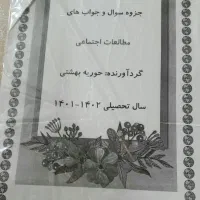 جزوه سوال و جواب های
مطالعات اجتماعی
گردآورنده: حوریه بهشتی
سال تحصیلی ۱۴۰۲-۱۴۰۱